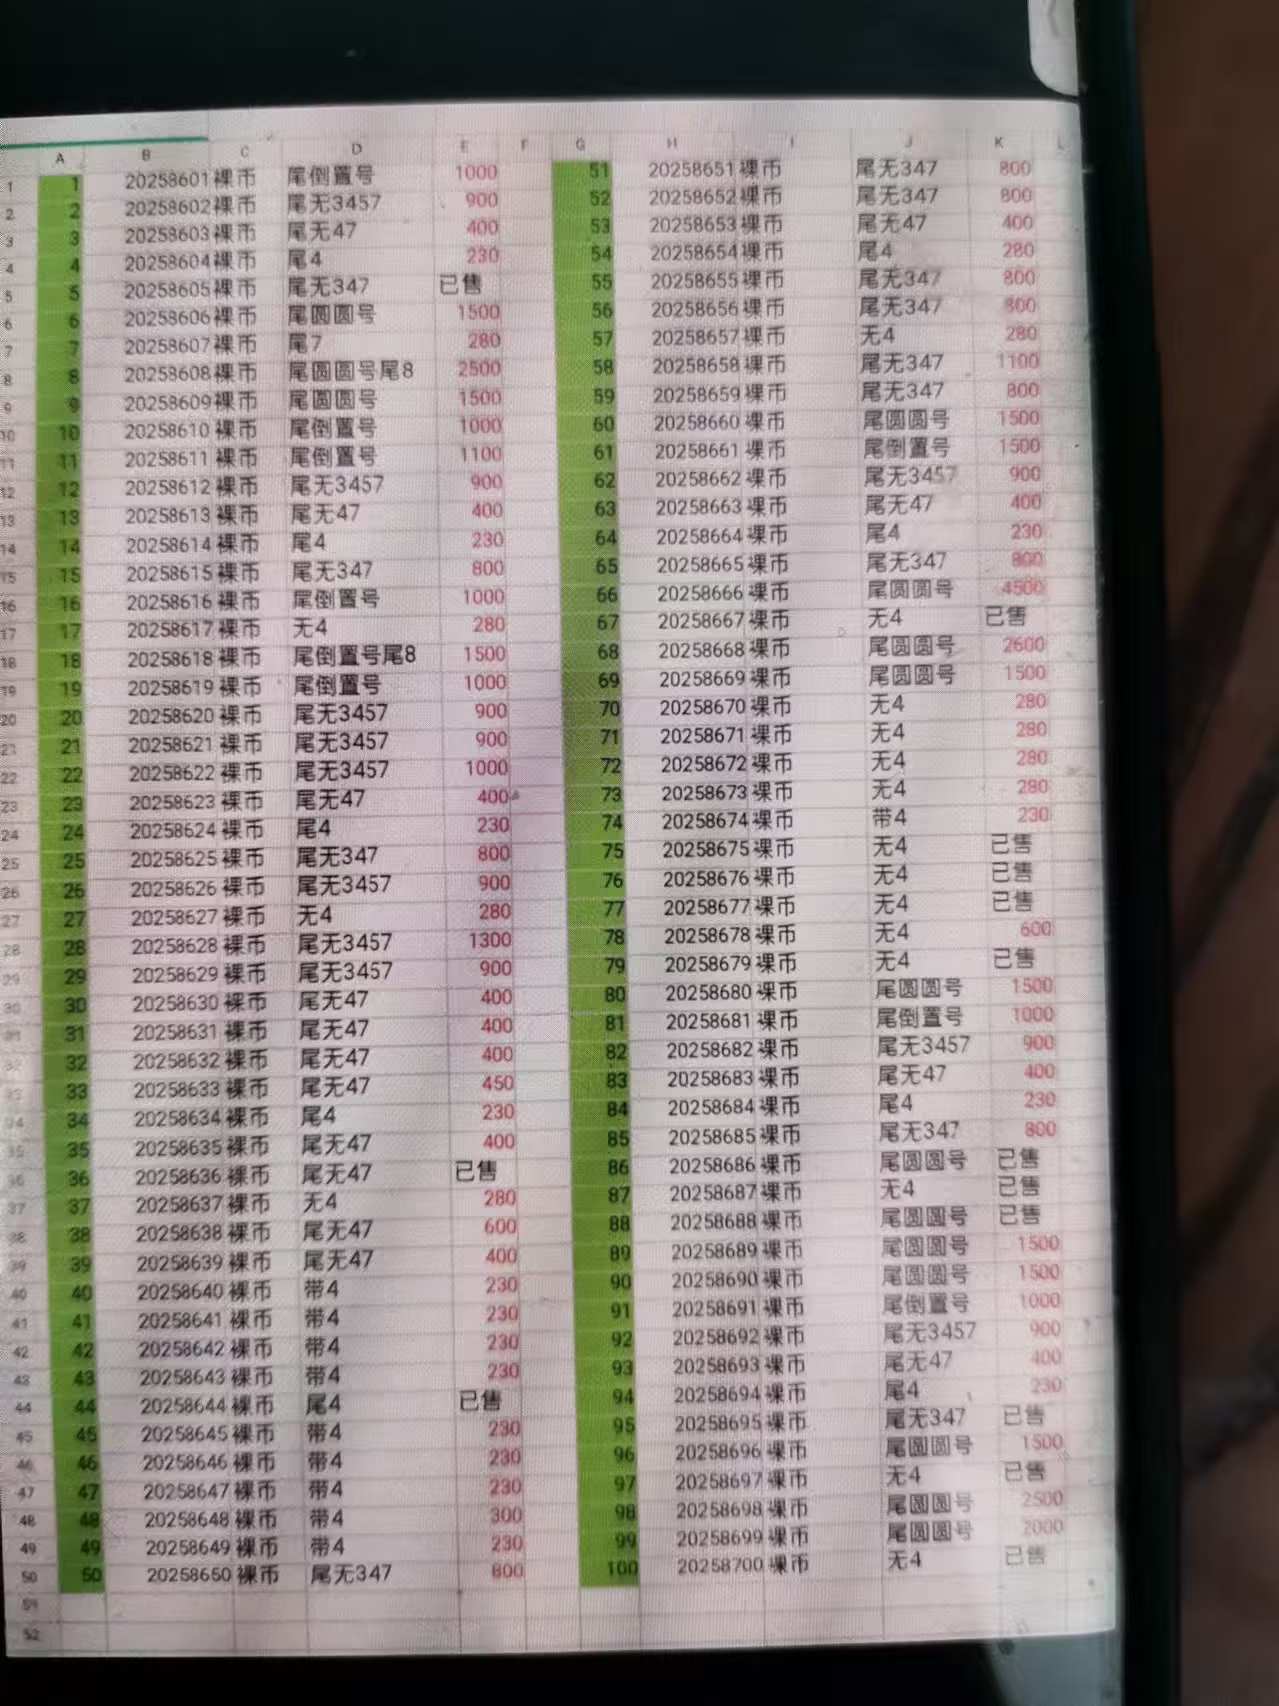 A B C D E F G H I J K L
1 1 20258601 裸币 尾倒置号 1000 51 20258651 裸币 尾无347 800
2 2 20258602 裸币 尾无3457 900 52 20258652 裸币 尾无347 800
3 3 20258603 裸币 尾无47 400 53 20258653 裸币 尾无47 400
4 4 20258604 裸币 尾4 230 54 20258654 裸币 尾4 280
5 5 20258605 裸币 尾无347 已售 55 20258655 裸币 尾无347 800
6 6 20258606 裸币 尾圆圆号 1500 56 20258656 裸币 尾无347 800
7 7 20258607 裸币 尾7 280 57 20258657 裸币 无4 280
8 8 20258608 裸币 尾圆圆号尾8 2500 58 20258658 裸币 尾无347 1100
9 9 20258609 裸币 尾圆圆号 1500 59 20258659 裸币 尾无347 800
10 10 20258610 裸币 尾倒置号 1000 60 20258660 裸币 尾圆圆号 1500
11 11 20258611 裸币 尾倒置号 1100 61 20258661 裸币 尾倒置号 1500
12 12 20258612 裸币 尾无3457 900 62 20258662 裸币 尾无3457 900
13 13 20258613 裸币 尾无47 400 63 20258663 裸币 尾无47 400
14 14 20258614 裸币 尾4 230 64 20258664 裸币 尾4 230
15 15 20258615 裸币 尾无347 800 65 20258665 裸币 尾无347 800
16 16 20258616 裸币 尾倒置号 1000 66 20258666 裸币 尾圆圆号 4500
17 17 20258617 裸币 无4 280 67 20258667 裸币 无4 已售
18 18 20258618 裸币 尾倒置号尾8 1500 68 20258668 裸币 尾圆圆号 2600
19 19 20258619 裸币 尾倒置号 1000 69 20258669 裸币 尾圆圆号 1500
20 20 20258620 裸币 尾无3457 900 70 20258670 裸币 无4 280
21 21 20258621 裸币 尾无3457 900 71 20258671 裸币 无4 280
22 22 20258622 裸币 尾无3457 1000 72 20258672 裸币 无4 280
23 23 20258623 裸币 尾无47 400 73 20258673 裸币 无4 280
24 24 20258624 裸币 尾4 230 74 20258674 裸币 带4 230
25 25 20258625 裸币 尾无347 800 75 20258675 裸币 无4 已售
26 26 20258626 裸币 尾无3457 900 76 20258676 裸币 无4 已售
27 27 20258627 裸币 无4 280 77 20258677 裸币 无4 已售
28 28 20258628 裸币 尾无3457 1300 78 20258678 裸币 无4 600
29 29 20258629 裸币 尾无3457 900 79 20258679 裸币 无4 已售
30 30 20258630 裸币 尾无47 400 80 20258680 裸币 尾圆圆号 1500
31 31 20258631 裸币 尾无47 400 81 20258681 裸币 尾倒置号 1000
32 32 20258632 裸币 尾无47 400 82 20258682 裸币 尾无3457 900
33 33 20258633 裸币 尾无47 450 83 20258683 裸币 尾无47 400
34 34 20258634 裸币 尾4 230 84 20258684 裸币 尾4 230
35 35 20258635 裸币 尾无47 400 85 20258685 裸币 尾无347 800
36 36 20258636 裸币 尾无47 已售 86 20258686 裸币 尾圆圆号 已售
37 37 20258637 裸币 无4 280 87 20258687 裸币 无4 已售
38 38 20258638 裸币 尾无47 600 88 20258688 裸币 尾圆圆号 已售
39 39 20258639 裸币 尾无47 400 89 20258689 裸币 尾圆圆号 1500
40 40 20258640 裸币 带4 230 90 20258690 裸币 尾圆圆号 1500
41 41 20258641 裸币 带4 230 91 20258691 裸币 尾倒置号 1000
42 42 20258642 裸币 带4 230 92 20258692 裸币 尾无3457 900
43 43 20258643 裸币 带4 230 93 20258693 裸币 尾无47 400
44 44 20258644 裸币 尾4 已售 94 20258694 裸币 尾4 230
45 45 20258645 裸币 带4 230 95 20258695 裸币 尾无347 已售
46 46 20258646 裸币 带4 230 96 20258696 裸币 尾圆圆号 1500
47 47 20258647 裸币 带4 230 97 20258697 裸币 无4 已售
48 48 20258648 裸币 带4 300 98 20258698 裸币 尾圆圆号 2500
49 49 20258649 裸币 带4 230 99 20258699 裸币 尾圆圆号 2000
50 50 20258650 裸币 尾无347 800 100 20258700 裸币 无4 已售
51
52